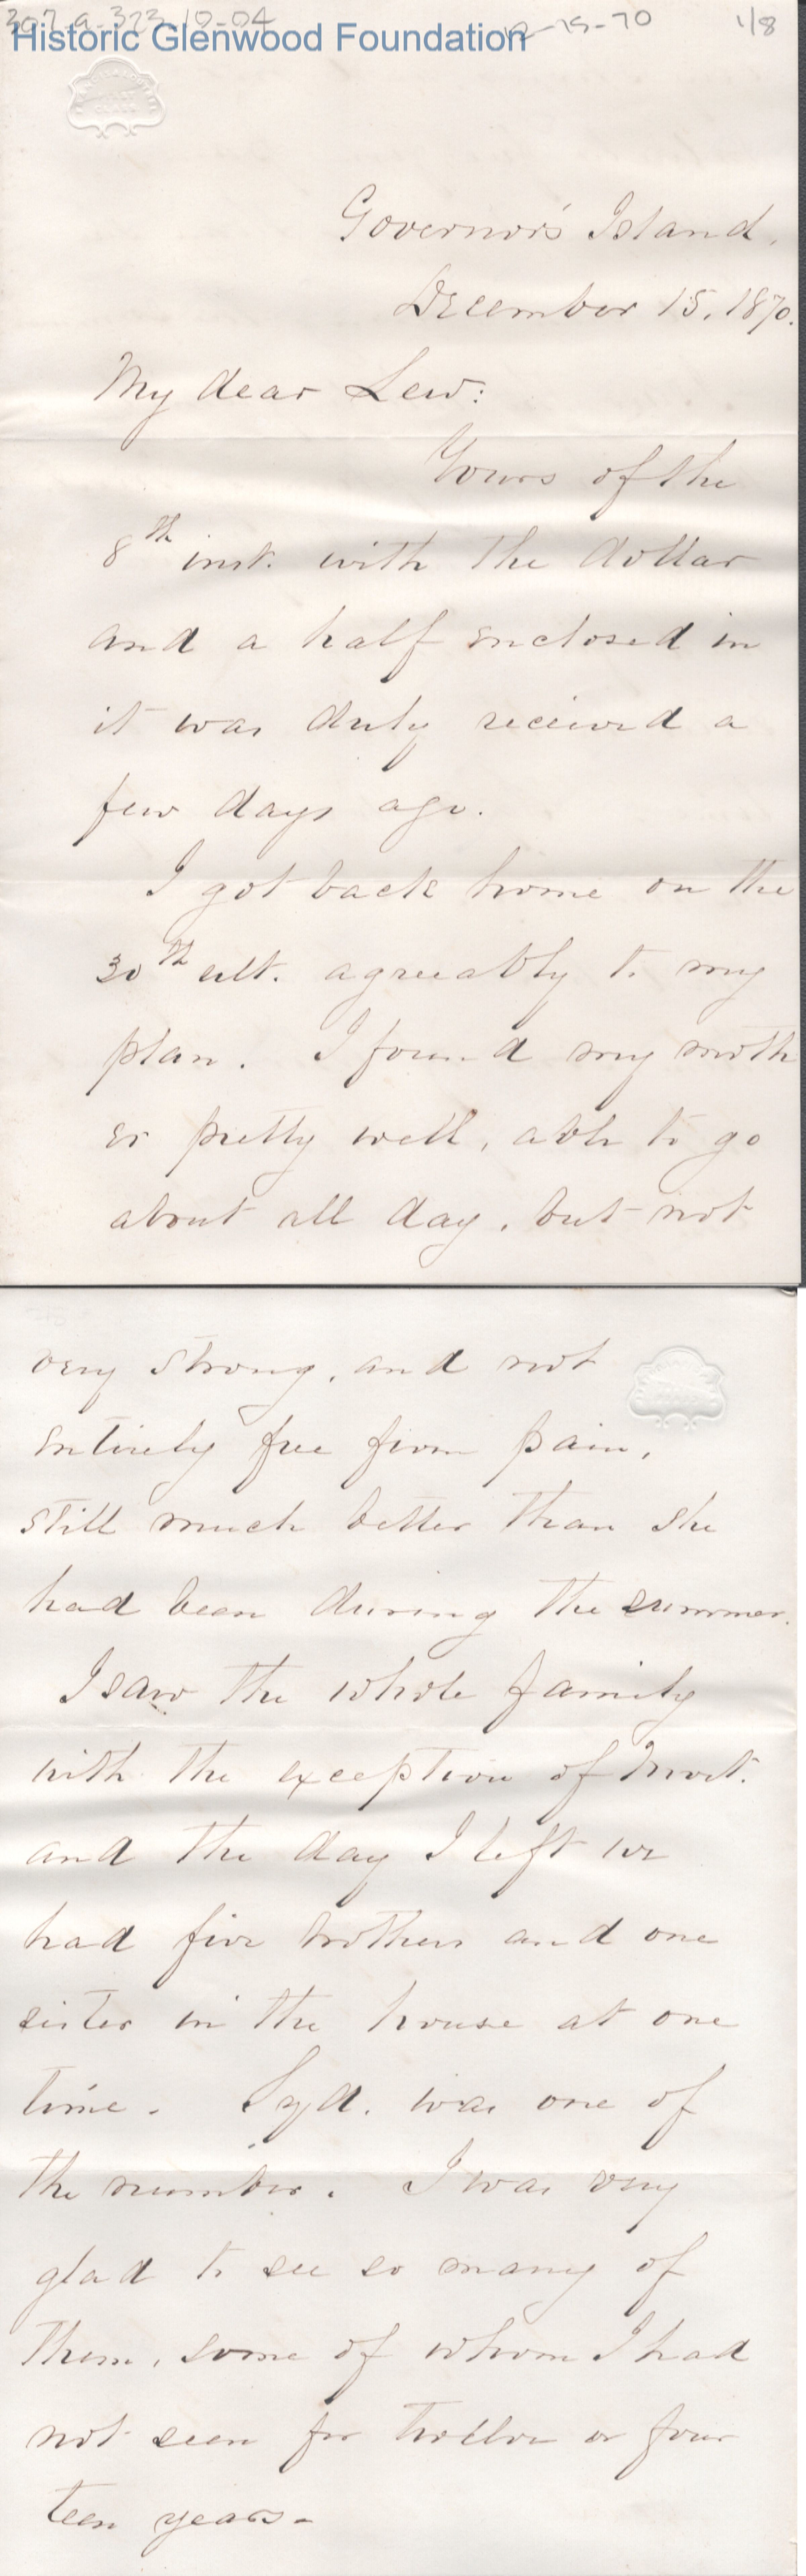 307-a-323-10-04
12-15-70
1/8
Historic Glenwood Foundation
Governor's Island,
December 15, 1870.
My dear Lew:
Yours of the
8th inst. with the dollar
and a half enclosed in
it was duly received a
few days ago.
I got back home on the
30th ult. agreeably to my
plan. I found my moth
er pretty well, able to go
about all day, but not
very strong, and not
entirely free from pain,
still much better than she
had been during the summer.
I saw the whole family
with the exception of
and the day I left we
had five brothers and one
sister in the house at one
time. Syd. was one of
the number. I was very
glad to see so many of
them, some of whom I had
not seen for twelve or four
teen years.